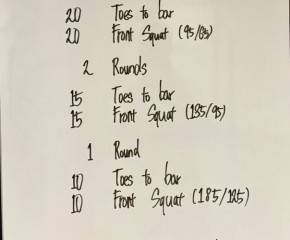 20 Toes to bar
20 Front Squat (95/65)
2 Rounds
15 Toes to bar
15 Front Squat (135/95)
1 Round
10 Toes to bar
10 Front Squat (185/125)